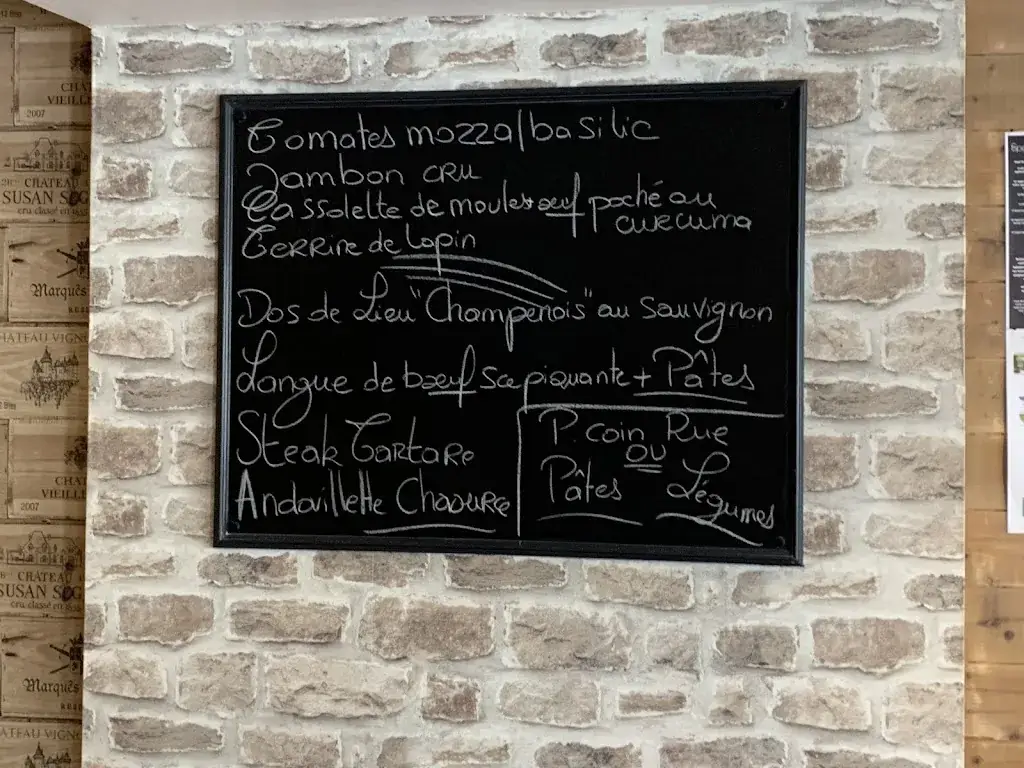 Tomates mozza/basilic
Jambon cru
Cassolette de moules œuf poché au
curcuma
Terrine de lapin
Dos de Lieu "Champenois" au Sauvignon
Langue de bœuf Sce piquante + Pâtes
Steak Tartare
Andouillette Chaource
P. coin Rue
ou
Pâtes Légumes
CHATEAU
VIEILL
2007
CHATEAU
SUSAN
cru classé en 1855
Marquès
CHATEAU VIGN
CHA
VIEILL
2007
CHATEAU
SUSAN
cru classé en 1855
Marquès
CHATEAU VIGN